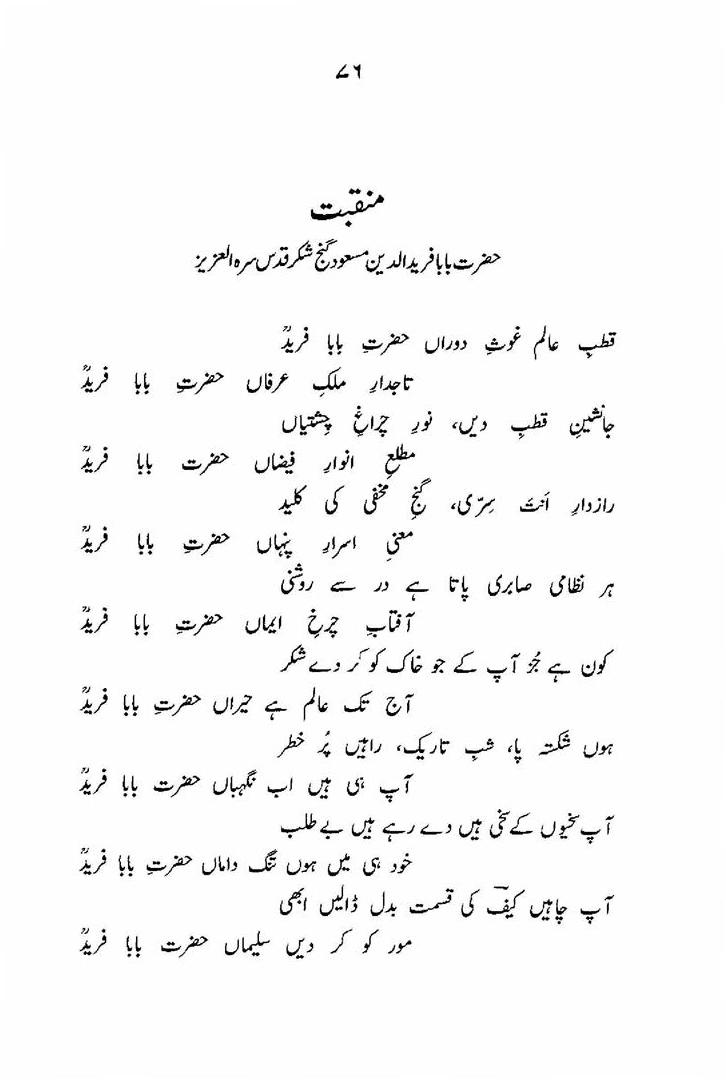 ۷۶
منقبت
حضرت بابا فرید الدین مسعود گنج شکر قدس سرہ العزیز
قطبِ عالم غوثِ دوراں حضرتِ بابا فریدؒ
تاجدارِ ملکِ عرفاں حضرتِ بابا فریدؒ
جانشینِ قطبِ دیں، نورِ چراغِ چشتیاں
مطلعِ انوارِ فیضاں حضرت بابا فریدؒ
رازدارِ اَنتَ سِرّی، گنجِ مخفی کی کلید
معنیِ اسرارِ پنہاں حضرتِ بابا فریدؒ
ہر نظامی صابری پاتا ہے در سے روشنی
آفتابِ چرخِ ایماں حضرتِ بابا فریدؒ
کون ہے جُز آپ کے جو خاک کو کر دے شکر
آج تک عالم ہے حیراں حضرتِ بابا فریدؒ
ہوں شکستہ پا، شبِ تاریک، راہیں پُر خطر
آپ ہی ہیں اب نگہباں حضرت بابا فریدؒ
آپ سخیوں کے سخی ہیں دے رہے ہیں بے طلب
خود ہی میں ہوں تنگ داماں حضرتِ بابا فریدؒ
آپ چاہیں کیفؔ کی قسمت بدل ڈالیں ابھی
مور کو کر دیں سلیماں حضرت بابا فریدؒ